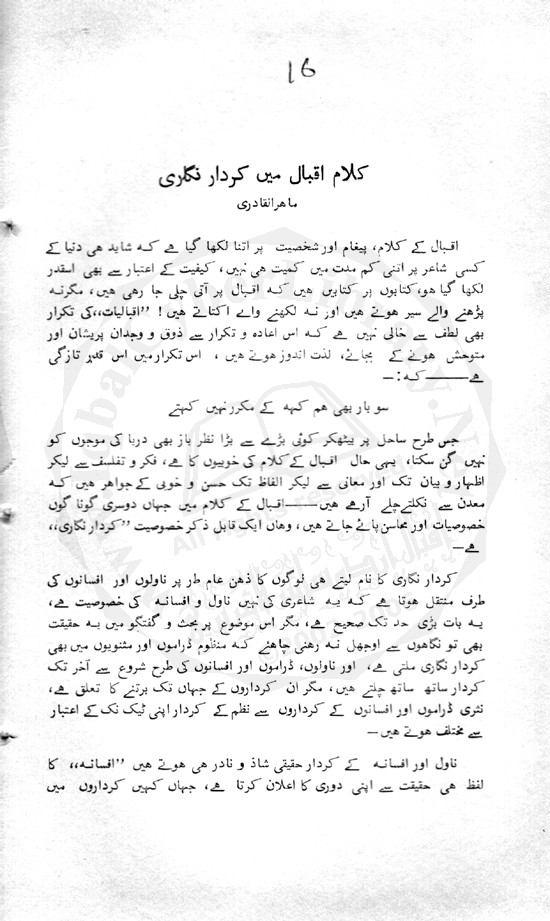 16
کلام اقبال میں کردار نگاری
ماهرالقادری
اقبال کے کلام، پیغام اور شخصیت پر اتنا لکھا گیا ہے کہ شاید ھی دنیا کے
کسی شاعر پر اتنی کم مدت میں کمیت ھی نہیں، کیفیت کے اعتبار سے بھی اسقدر
لکھا گیا ھو، کتابوں پر کتابیں ھیں کہ اقبال پر آتی چلی جا رھی ھیں، مگر نہ
پڑھنے والے سیر ھوتے ھیں اور نہ لکھنے والے اکتاتے ھیں! ''اقبالیات،، کی تکرار
بھی لطف سے خالی نہیں ہے کہ اس اعادہ و تکرار سے ذوق و وجدان پریشان اور
متوحش ھونے کے بجائے، لذت اندوز ھوتے ھیں، اس تکرار میں اس قدر تازگی
ہے——کہ:—
سو بار بھی ھم کہہ کے مکرر نہیں کہتے
جس طرح ساحل پر بیٹھکر کوئی بڑے سے بڑا نظر باز بھی دریا کی موجوں کو
نہیں گن سکتا، یہی حال اقبال کے کلام کی خوبیوں کا ہے، فکر و تفلسف سے لیکر
اظہار و بیان تک اور معانی سے لیکر الفاظ تک حسن و خوبی کے جواھر ھیں کہ
معدن سے نکلتے چلے آرھے ھیں——اقبال کے کلام میں جہاں دوسری گونا گوں
خصوصیات اور محاسن پائے جاتے ھیں، وھاں ایک قابل ذکر خصوصیت ''کردار نگاری،،
ہے—
کردار نگاری کا نام لیتے ھی لوگوں کا ذھن عام طر پر ناولوں اور افسانوں کی
طرف منتقل ھوتا ہے کہ یہ شاعری کی نہیں ناول و افسانہ کی خصوصیت ہے،
یہ بات بڑی حد تک صحیح ہے، مگر اس موضوع پر بحث و گفتگو میں یہ حقیقت
بھی تو نگاھوں سے اوجھل نہ رھنی چاھئے کہ منظوم ڈراموں اور مثنویوں میں بھی
کردار نگاری ملتی ہے، اور ناولوں، ڈراموں اور افسانوں کی طرح شروع سے آخر تک
کردار ساتھ ساتھ چلتے ھیں، مگر ان کرداروں کے جہاں تک برتنے کا تعلق ہے،
نثری ڈراموں اور افسانوں کے کرداروں سے نظم کے کردار اپنی ٹیک نک کے اعتبار
سے مختلف ھوتے ھیں—
ناول اور افسانہ کے کردار حقیقی شاذ و نادر ھی ھوتے ھیں ''افسانہ،، کا
لفظ ھی حقیقت سے اپنی دوری کا اعلان کرتا ہے، جہاں کہیں کرداروں میں